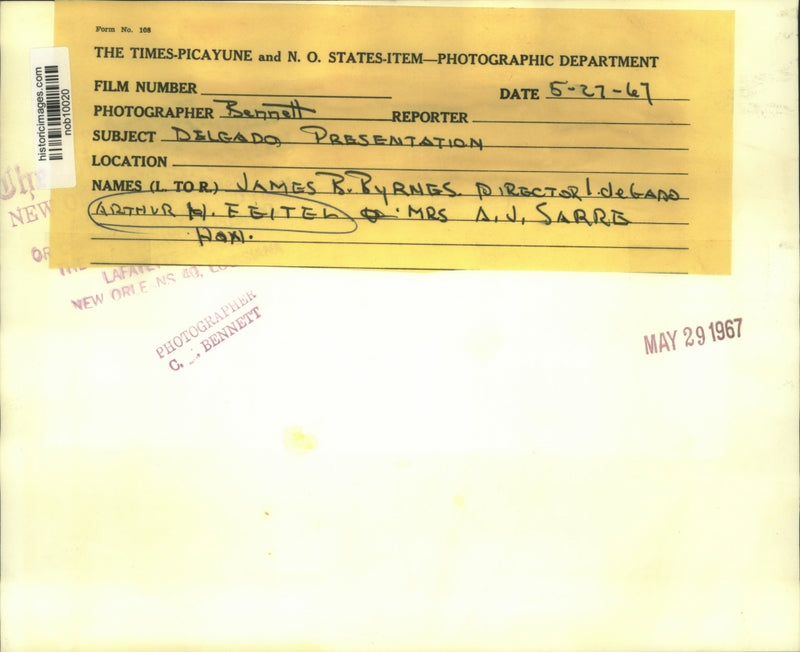 Form No. 108
THE TIMES-PICAYUNE and N. O. STATES-ITEM—PHOTOGRAPHIC DEPARTMENT
FILM NUMBER DATE 5-27-67
PHOTOGRAPHER Bennett REPORTER
SUBJECT DELGADO PRESENTATION
LOCATION
NAMES (L. TO R.) JAMES B. BYRNES DIRECTOR deGADO
ARTHUR H. FEITEL MRS A.J. SARRE
HON.
historicimages.com
nob10020
The
NEW
OR
LAFAYE
NEW ORLEANS 40,
PHOTOGRAPHER
C. BENNETT
MAY 29 1967